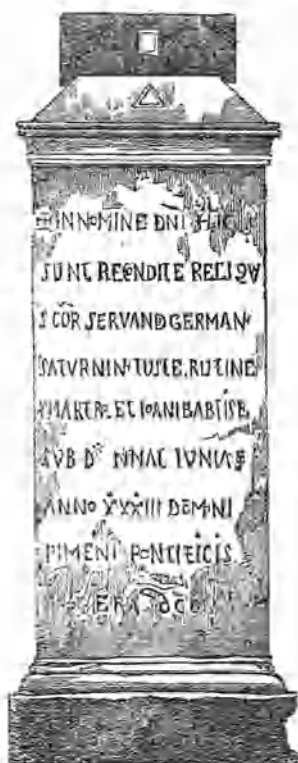 IN NOMINE DNI HIC
SUNT RECONDITE RELIQV
S COR SERVAND GERMAN
SATURNIN IUSTE. RUFINE
MARTR ET IOANI BABTISE
SUB D NNAC IUNIAS
ANNO XXXIII DOMNI
PIMENI PONTIFICIS
ERA DCC